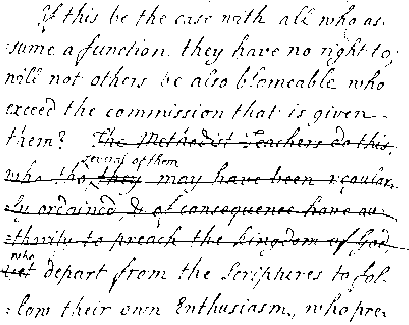 If this be the case with all who as-
:sume a function they have no right to;
will not others be also blameable who
exceed the commission that is given
them? The Methodist Teachers do this,
several of them
who tho' they may have been regular-
:ly ordained, & of consequence have au-
:thority to preach the kingdom of God,
who
yet depart from the Scriptures to fol-
:low their own Enthusiasm, who pre-